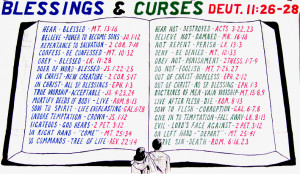 BLESSINGS & CURSES DEUT. 11:26-28
HEAR - BLESSED - MT. 13:16
BELIEVE - POWER TO BECOME SONS - JO. 1:12
REPENTANCE TO SALVATION - 2 COR. 7:10
CONFESS - BE CONFESSED - MT. 10:32
OBEY - BLESSED - LK. 11:28
DOER OF WORD - BLESSED - JS. 1:22-25
IN CHRIST - NEW CREATURE - 2 COR. 5:17
IN CHRIST - ALL BLESSINGS - EPH. 1:3
TRUE WORSHIP ACCEPTABLE - JO. 4:23,24
MORTIFY DEEDS OF BODY - LIVE - ROM. 8:13
SOW TO SPIRIT - LIFE EVERLASTING - GAL. 6:7,8
ENDURE TEMPTATION - CROWN - JS. 1:12
RIGHTEOUS - GOD HEARS - 2 PET. 3:12
ON RIGHT HAND - "COME" - MT. 25:34
DO COMMANDS - TREE OF LIFE - REV. 22:14
HEAR NOT - DESTROYED - ACTS 3:22,23
BELIEVE NOT - DAMNED - MK. 16:16
NOT REPENT - PERISH - LK. 13:3
DENY - BE DENIED - MT. 10:33
OBEY NOT - PUNISHMENT - 2 THESS. 1:7-9
DO NOT - FOOLISH - MT. 7:26,27
OUT OF CHRIST - HOPELESS - EPH. 2:12
OUT OF CHRIST - NO BLESSINGS - EPH. 1:3
DOCTRINES OF MEN - VAIN WORSHIP - MT. 15:8,9
LIVE AFTER FLESH - DIE - ROM. 8:13
SOW TO FLESH - CORRUPTION - GAL. 6:7,8
GIVE IN TO TEMPTATION - FALL AWAY - LK. 8:13
EVIL - LORD'S FACE AGAINST - 2 PET. 3:12
ON LEFT HAND - "DEPART" - MT. 25:41
SIN - DEATH - ROM. 6:16,23